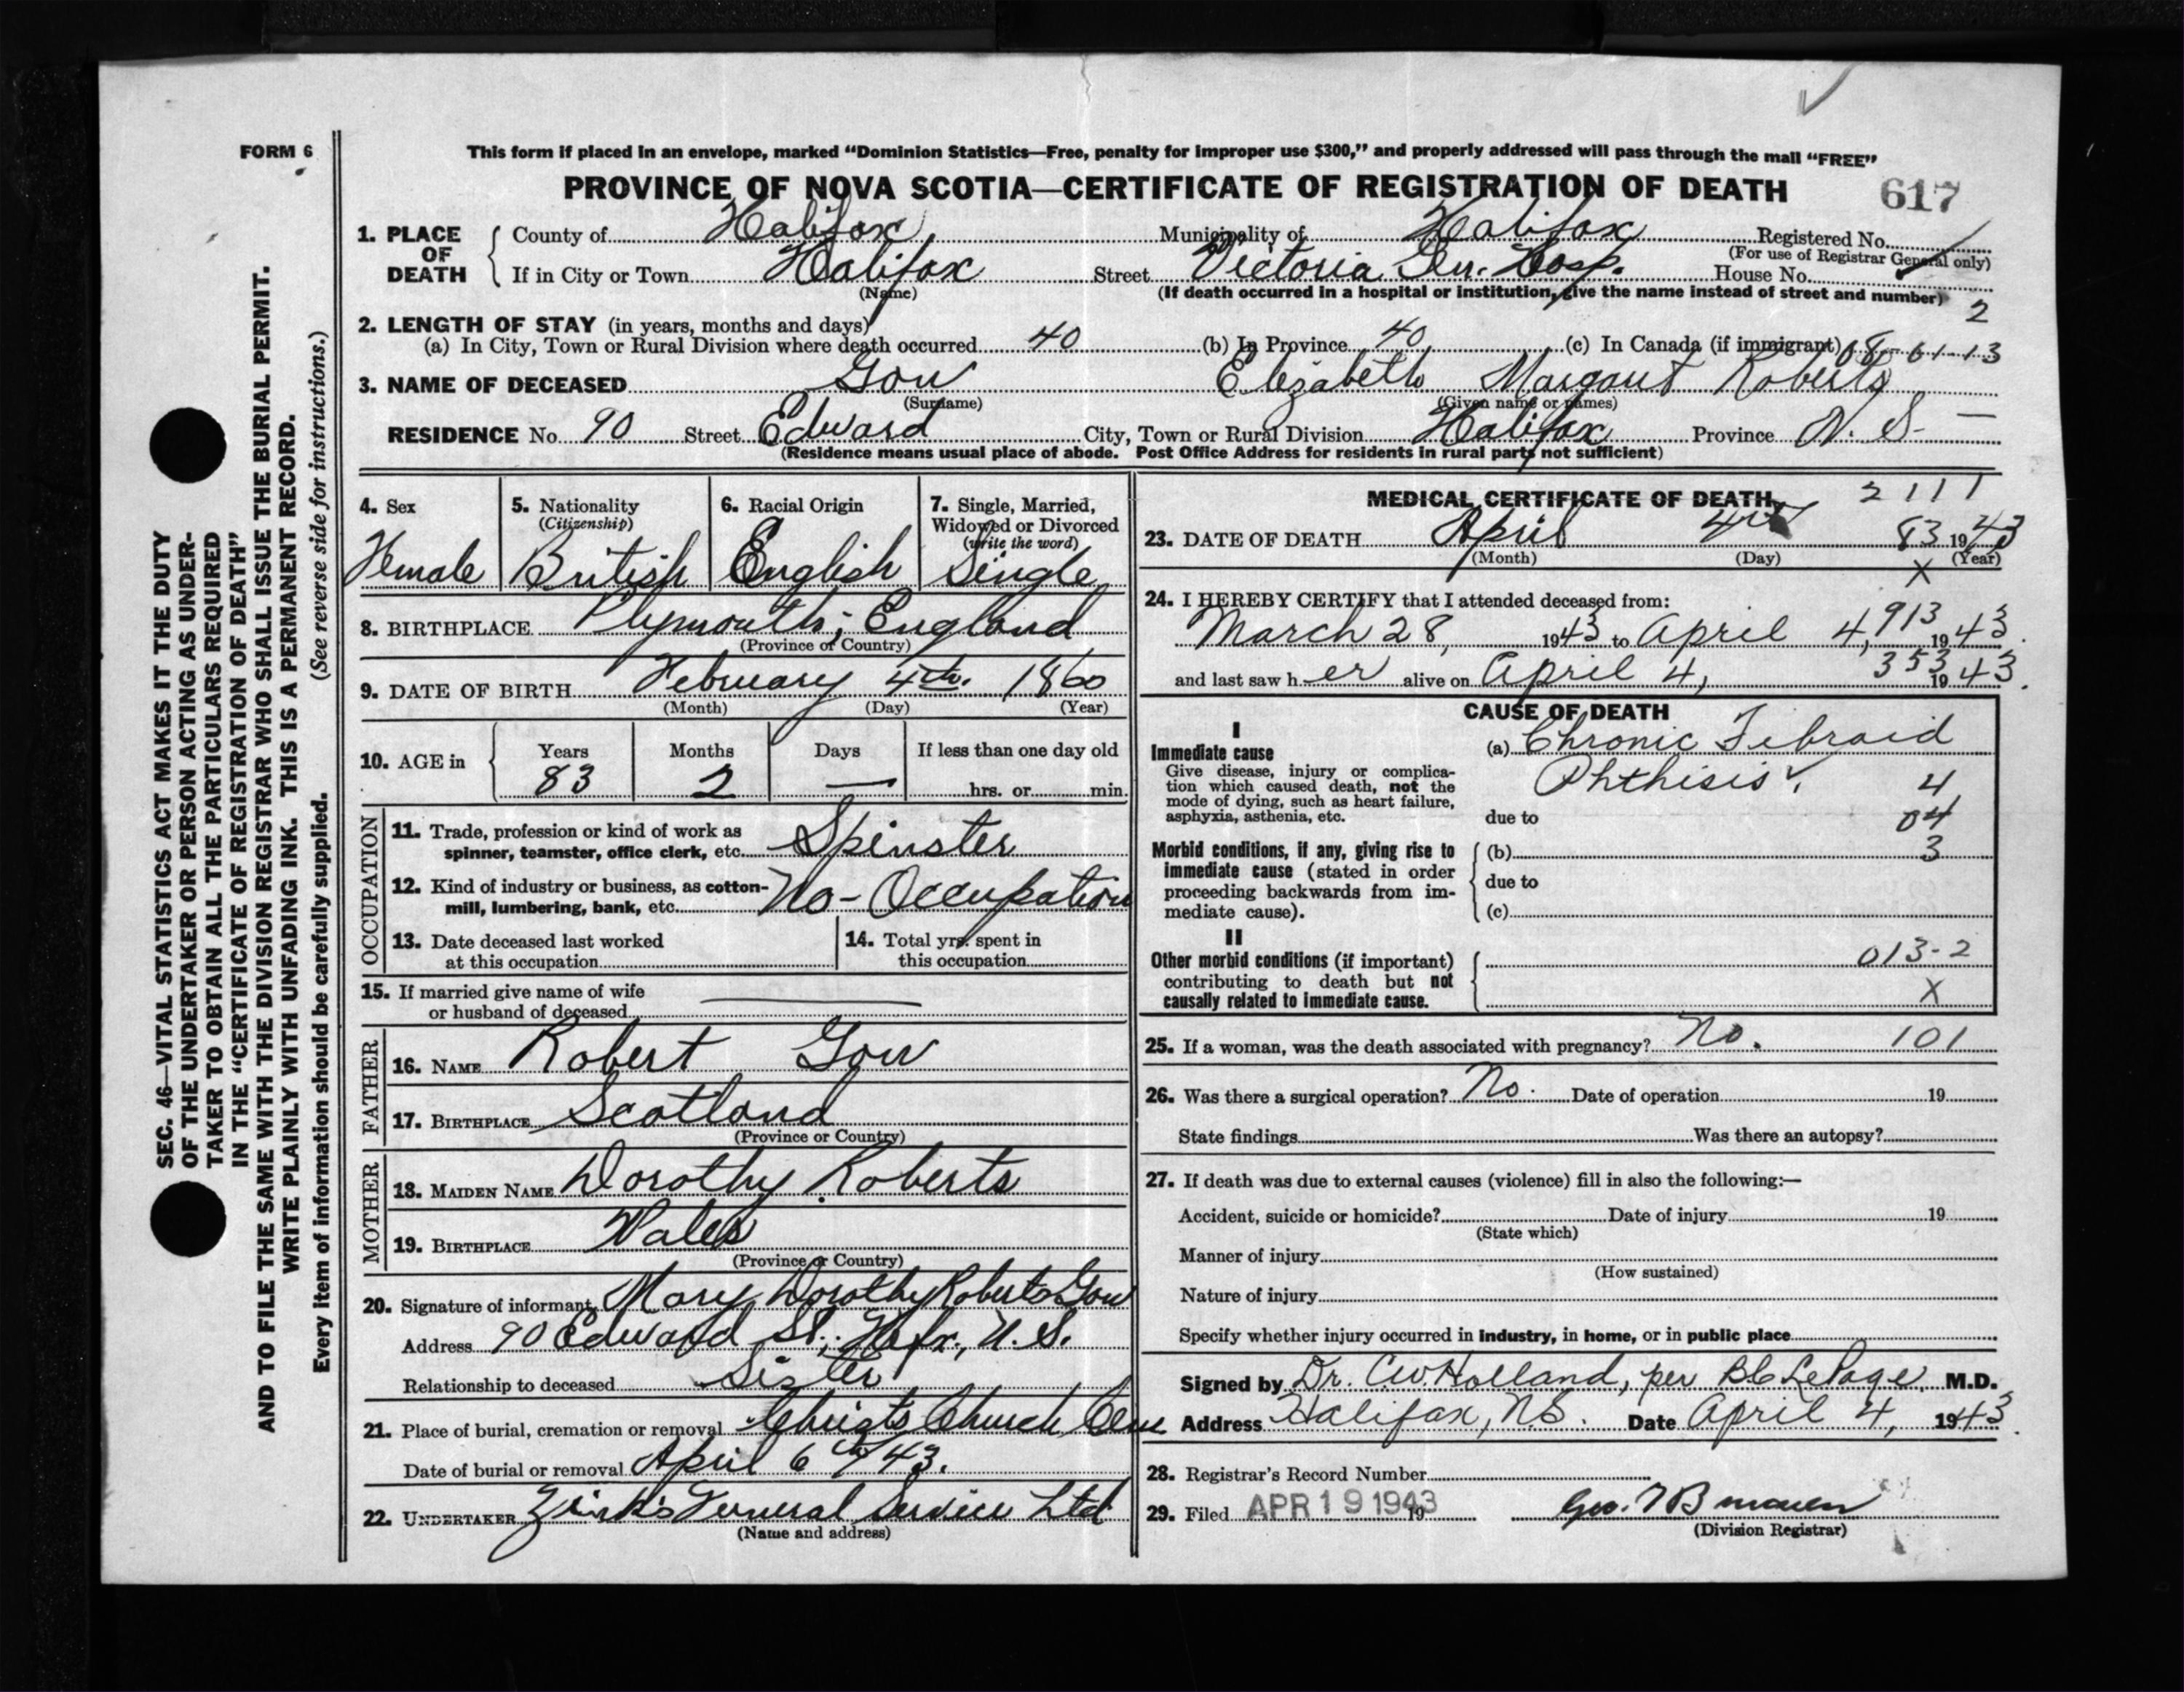 FORM 6
This form if placed in an envelope, marked “Dominion Statistics—Free, penalty for improper use $300,” and properly addressed will pass through the mail “FREE”
PROVINCE OF NOVA SCOTIA—CERTIFICATE OF REGISTRATION OF DEATH 617
1. PLACE OF DEATH
County of Halifax Municipality of Halifax Registered No.
(For use of Registrar General only)
If in City or Town Halifax Street Victoria Gen. Hosp. House No.
(Name) (If death occurred in a hospital or institution, give the name instead of street and number) 2
2. LENGTH OF STAY (in years, months and days)
(a) In City, Town or Rural Division where death occurred 40 (b) In Province 40 (c) In Canada (if immigrant) 08-01-13
3. NAME OF DECEASED Gow Elizabeth Margaret Roberts
(Surname) (Given name or names)
RESIDENCE No. 90 Street Edward City, Town or Rural Division Halifax Province N. S. —
(Residence means usual place of abode. Post Office Address for residents in rural parts not sufficient)
4. Sex Female
5. Nationality (Citizenship) British
6. Racial Origin English
7. Single, Married, Widowed or Divorced (write the word) Single
8. BIRTHPLACE Plymouth, England
(Province or Country)
9. DATE OF BIRTH February 4th. 1860
(Month) (Day) (Year)
10. AGE in Years 83 Months 2 Days — If less than one day old hrs. or min.
OCCUPATION
11. Trade, profession or kind of work as
spinner, teamster, office clerk, etc. Spinster
12. Kind of industry or business, as cotton-
mill, lumbering, bank, etc. No-Occupation
13. Date deceased last worked
at this occupation
14. Total yrs. spent in
this occupation
15. If married give name of wife
or husband of deceased —
FATHER
16. NAME Robert Gow
17. BIRTHPLACE Scotland
(Province or Country)
MOTHER
18. MAIDEN NAME Dorothy Roberts
19. BIRTHPLACE Wales
(Province or Country)
20. Signature of informant Mary Dorothy Roberts Gow
Address 90 Edward St., Hfx., N. S.
Relationship to deceased Sister
21. Place of burial, cremation or removal Christs Church Cem
Date of burial or removal April 6th/43.
22. UNDERTAKER Zink's Funeral Service Ltd
(Name and address)
MEDICAL CERTIFICATE OF DEATH 2111
23. DATE OF DEATH April 4th 83 1943
(Month) (Day) (Year)
X
24. I HEREBY CERTIFY that I attended deceased from:
March 28, 1943 to April 4, 913 1943.
and last saw her alive on April 4, 353 1943.
CAUSE OF DEATH
I
Immediate cause
Give disease, injury or complica-
tion which caused death, not the
mode of dying, such as heart failure,
asphyxia, asthenia, etc.
(a) Chronic Fibroid
Phthisis. 4
due to 04
Morbid conditions, if any, giving rise to
immediate cause (stated in order
proceeding backwards from im-
mediate cause).
(b) 3
due to
(c)
II
Other morbid conditions (if important)
contributing to death but not
causally related to immediate cause.
013-2
X
25. If a woman, was the death associated with pregnancy? No. 101
26. Was there a surgical operation? No. Date of operation 19
State findings Was there an autopsy?
27. If death was due to external causes (violence) fill in also the following:—
Accident, suicide or homicide? Date of injury 19
(State which)
Manner of injury
(How sustained)
Nature of injury
Specify whether injury occurred in industry, in home, or in public place
Signed by Dr. C.W. Holland, per B C LePage, M.D.
Address Halifax, N.S. Date April 4, 1943.
28. Registrar's Record Number
29. Filed APR 19 1943 19 Geo.
(Division Registrar)
SEC. 46—VITAL STATISTICS ACT MAKES IT THE DUTY
OF THE UNDERTAKER OR PERSON ACTING AS UNDER-
TAKER TO OBTAIN ALL THE PARTICULARS REQUIRED
IN THE “CERTIFICATE OF REGISTRATION OF DEATH”
AND TO FILE THE SAME WITH THE DIVISION REGISTRAR WHO SHALL ISSUE THE BURIAL PERMIT.
WRITE PLAINLY WITH UNFADING INK. THIS IS A PERMANENT RECORD.
Every item of information should be carefully supplied. (See reverse side for instructions.)